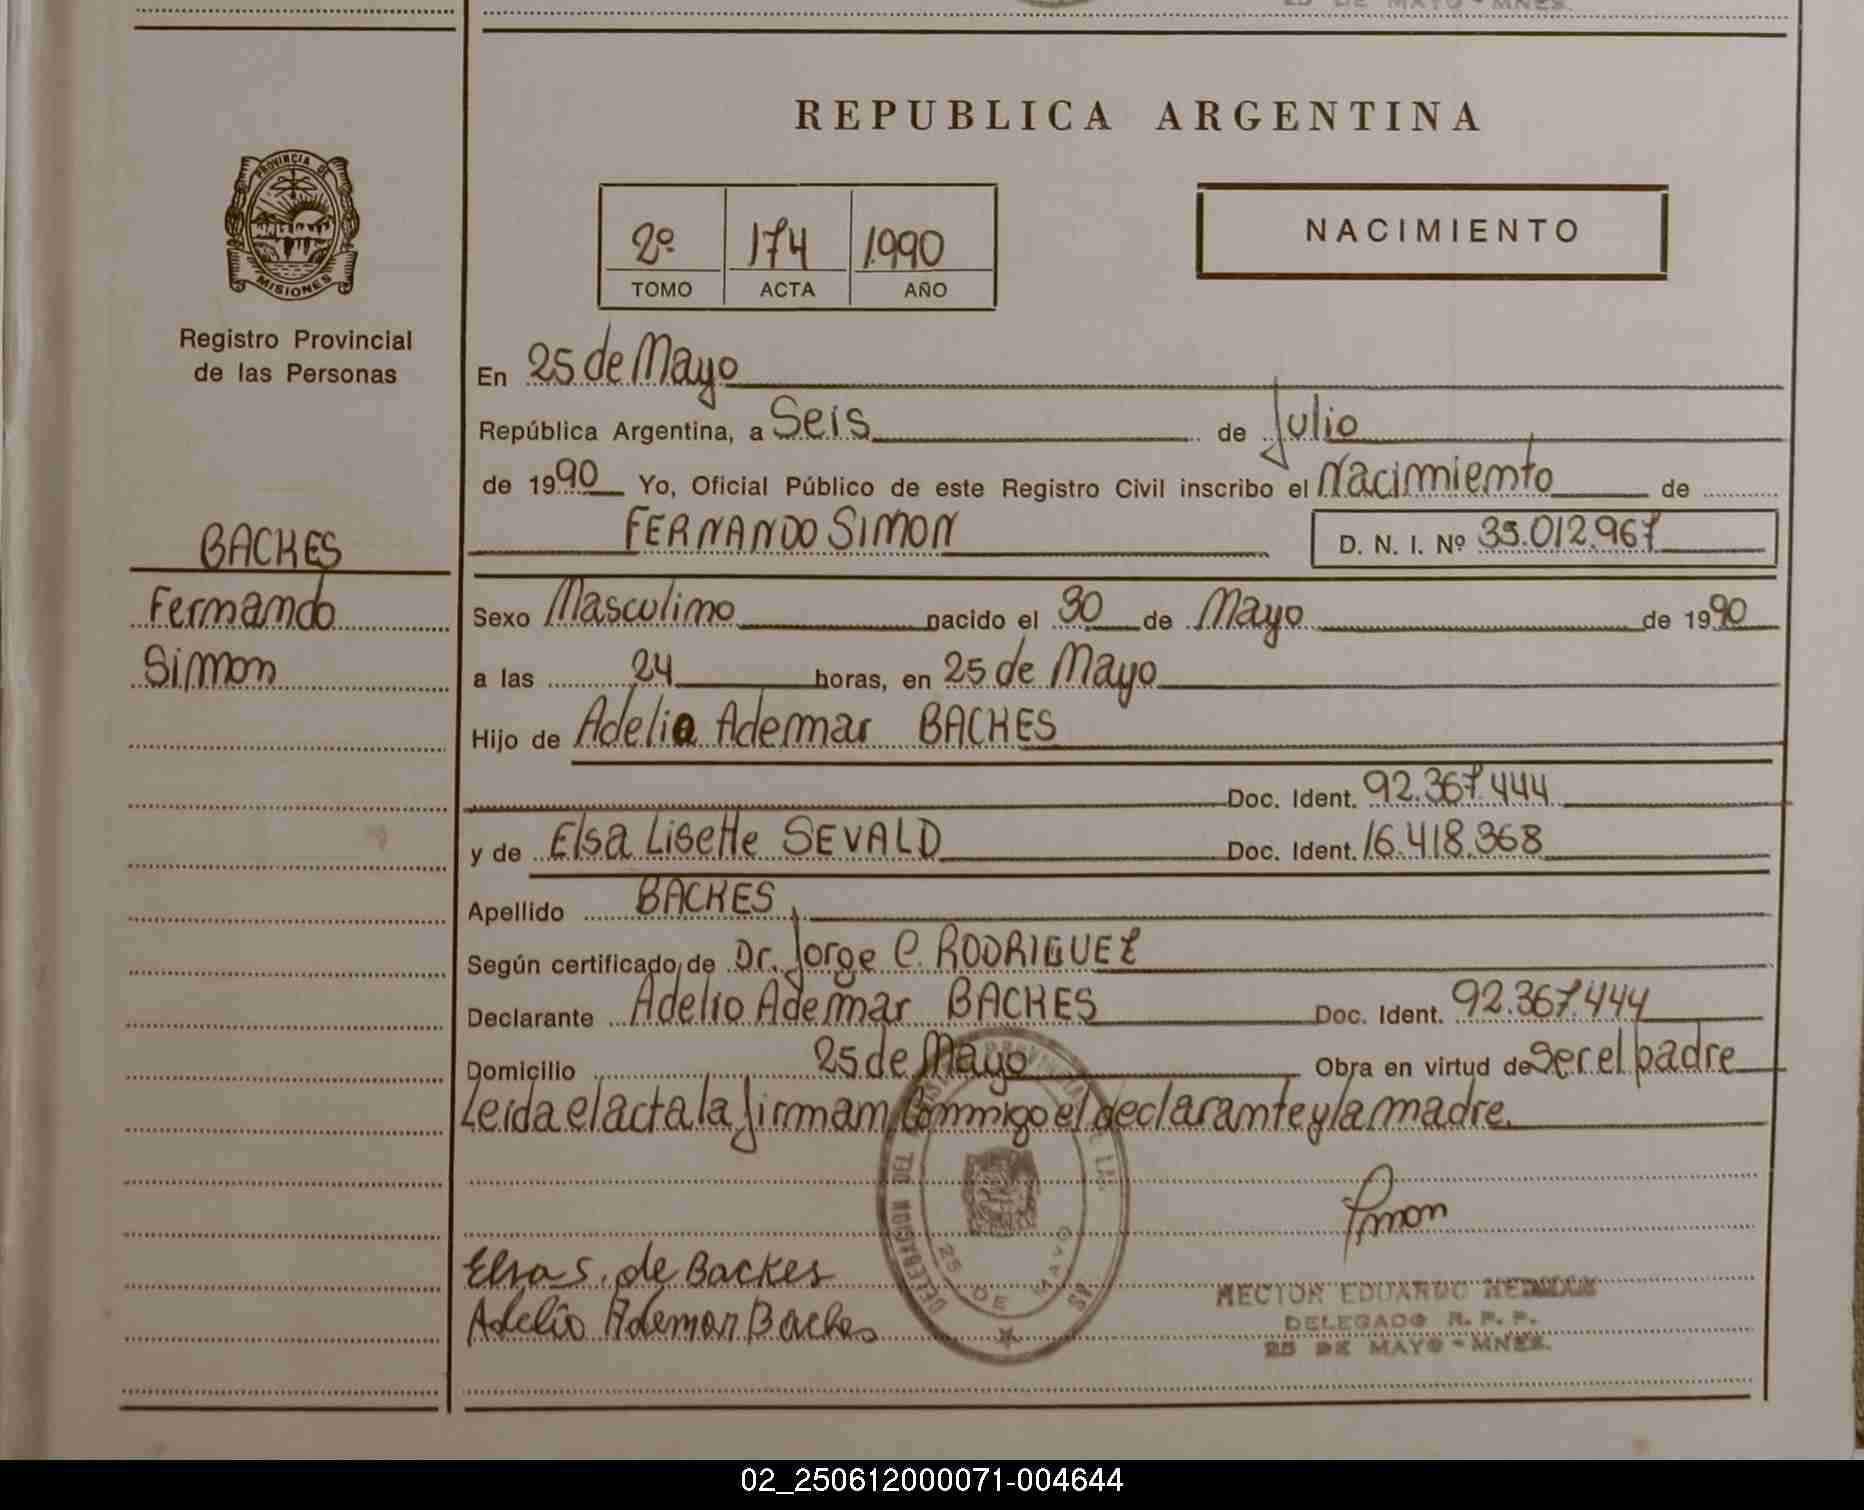 25 DE MAYO - MNES.
REPUBLICA ARGENTINA
PROVINCIA DE
MISIONES
Registro Provincial
de las Personas
2º 174 1990
TOMO ACTA AÑO
NACIMIENTO
En 25 de Mayo
República Argentina, a Seis de Julio
de 1990 Yo, Oficial Público de este Registro Civil inscribo el Nacimiento de
FERNANDO SIMON D. N. I. Nº 35.012.967
BACKES
Fernando
Simon
Sexo Masculino nacido el 30 de Mayo de 1990
a las 24 horas, en 25 de Mayo
Hijo de Adelio Ademar BACKES
Doc. Ident. 92.367.444
y de Elsa Lisette SEVALD Doc. Ident. 16.418.368
Apellido BACKES
Según certificado de Dr. Jorge C. RODRIGUEZ
Declarante Adelio Ademar BACKES Doc. Ident. 92.367.444
Domicilio 25 de Mayo Obra en virtud de ser el padre
Leida el acta la firman conmigo el declarante y la madre.
25 DE MAYO
Elsa S. de Backes
Adelio Ademar Backes
HECTOR EDUARDO
DELEGADO R. P. P.
25 DE MAYO - MNES.
02_250612000071-004644